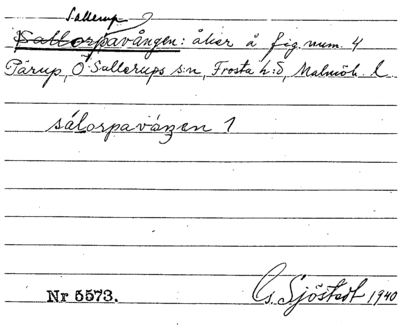 Sallerup
Kallorpavången: åker å fig. num. 4
Pärup, Ö Sallerups s:n, Frosta h:d, Malmöh. l.
sálorpaváŋen 1
Nr 5573.
G. Sjöstedt 1940